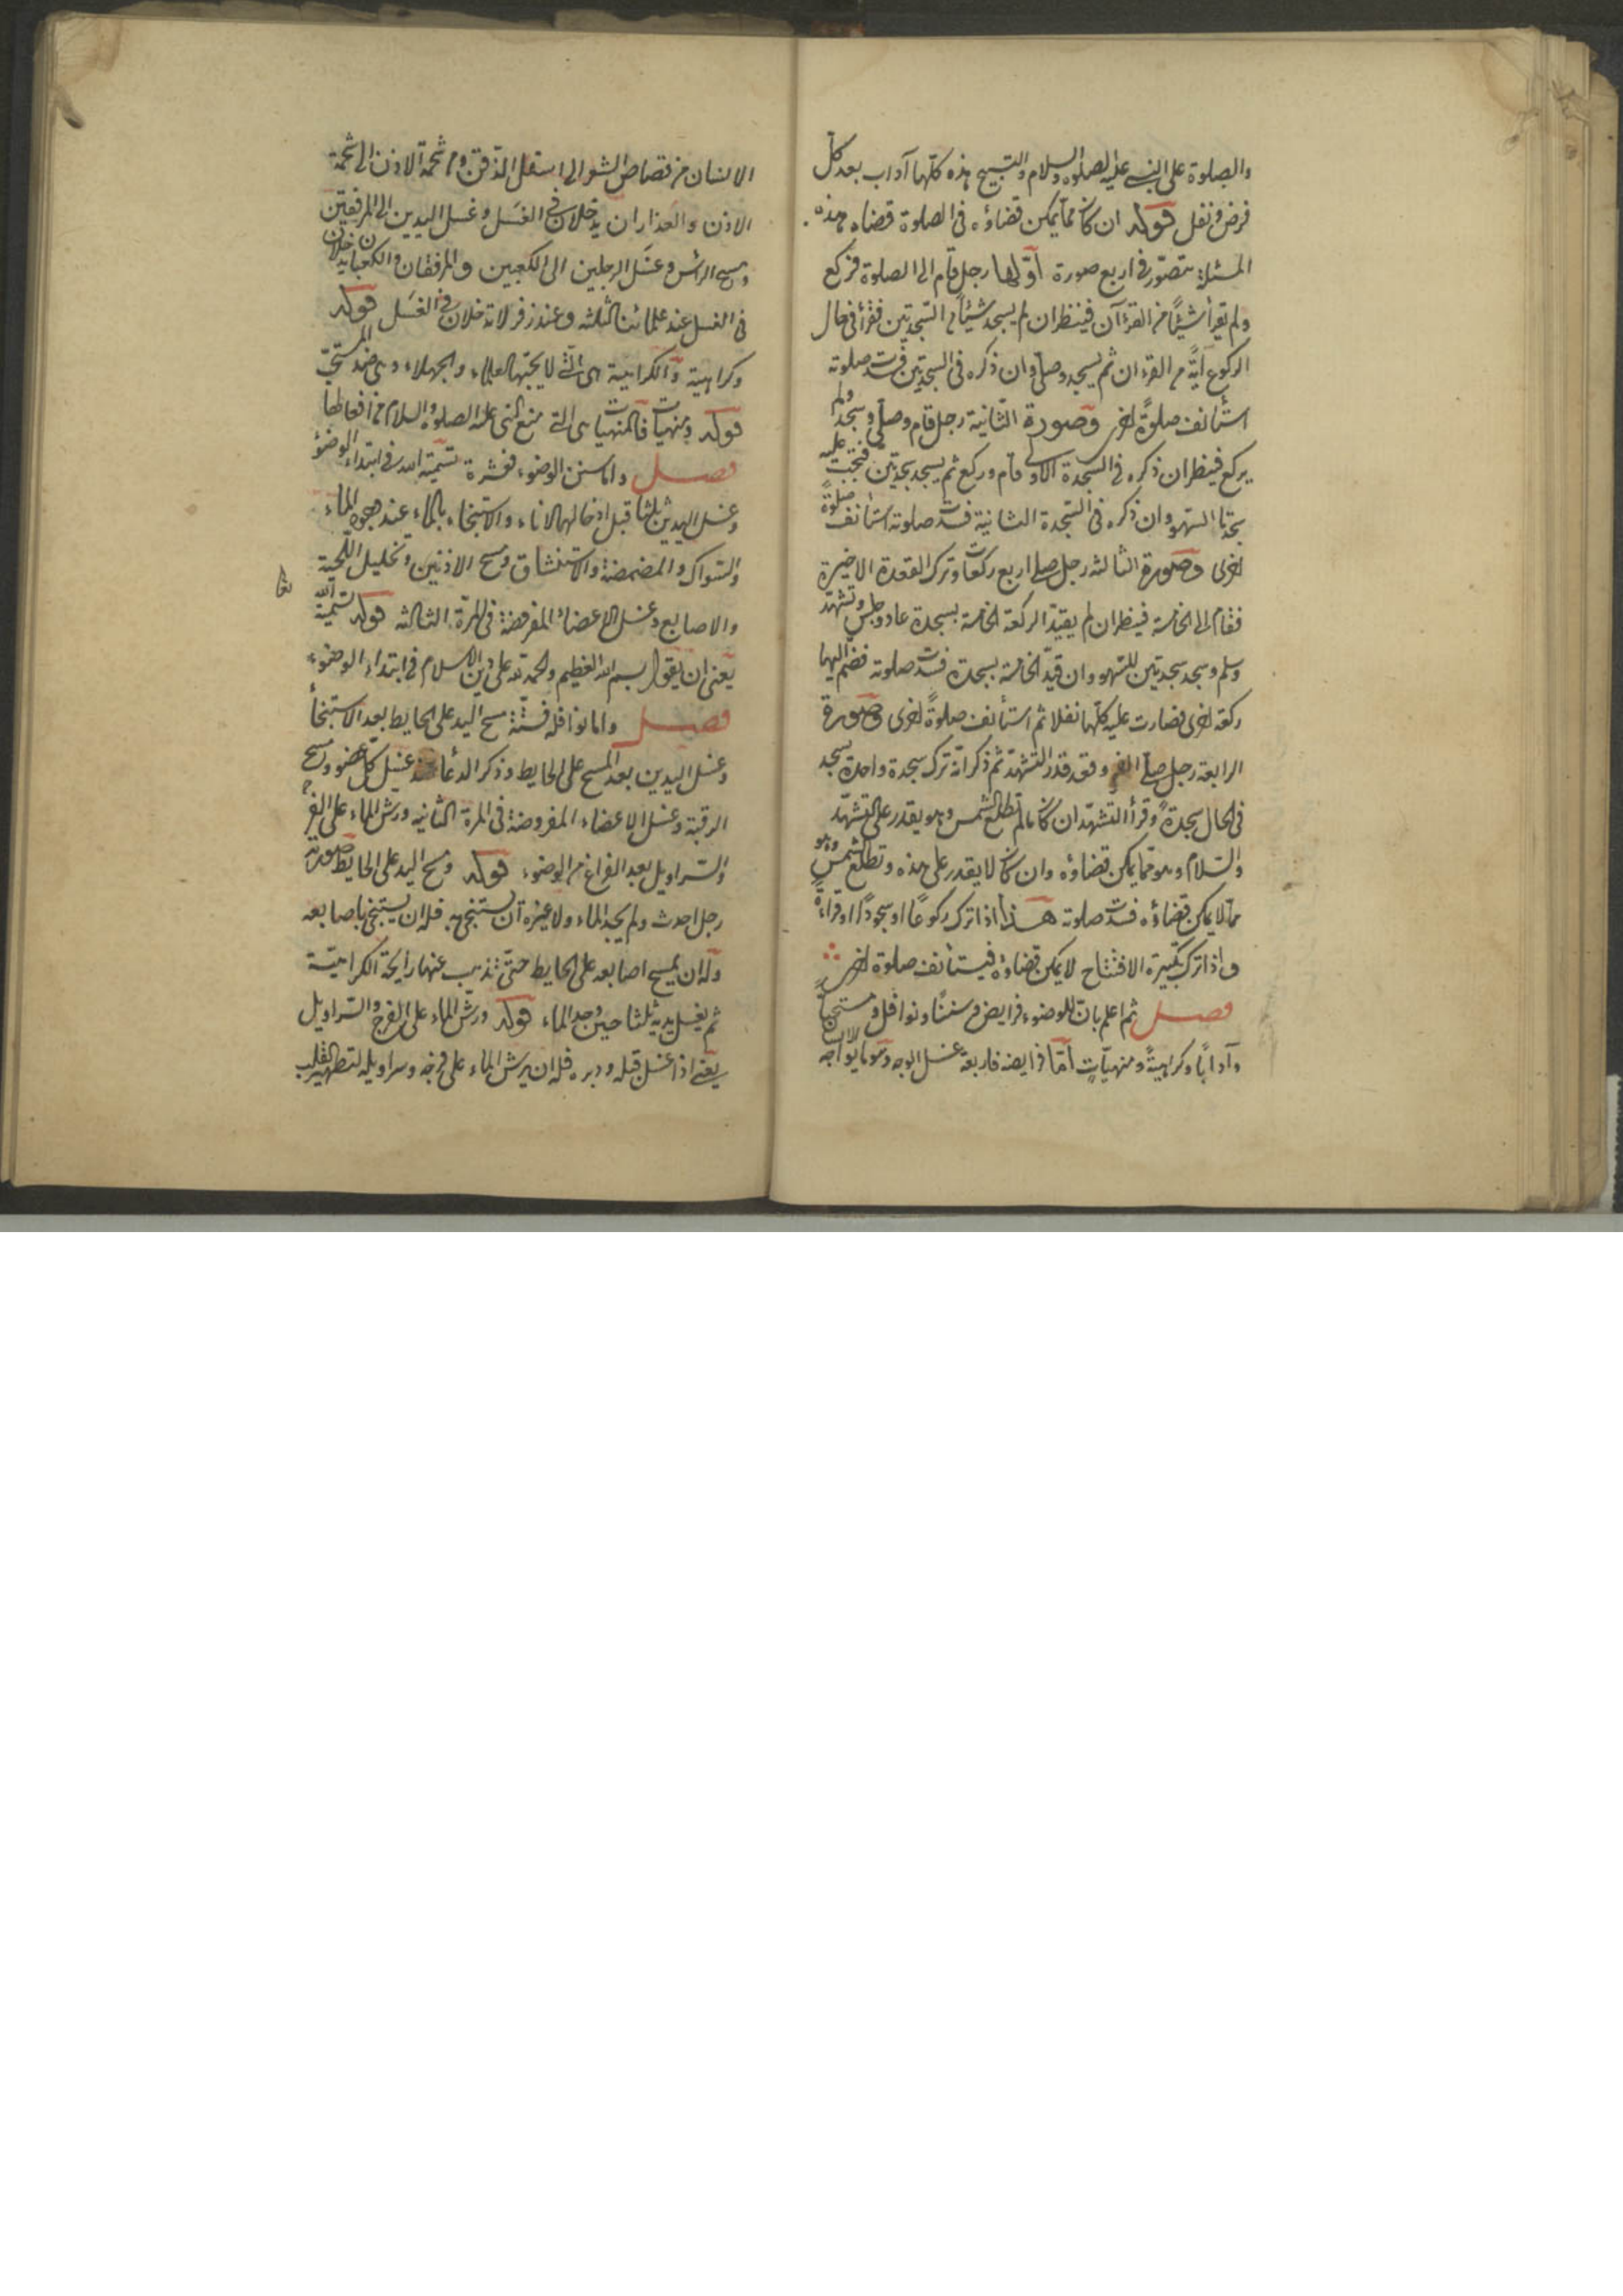 والصلوة على النبى عليه الصلوة والسلام والتسبيح هذه كلها آداب بعد كل
فرض ونفل قوله ان كان مما يمكن قضاؤه فى الصلوة قضاه هذه
المسئلة تتصور فى اربع صورة اولها رجل قام الى الصلوة فركع
ولم يقرأ شيئًا من القرءآن فينظر ان لم يسجد شيئًا من السجدتين فقرأ فى حال
الركوع آيةً من القرءان ثم يسجد وصلى وان ذكره فى السجدتين فسدت صلوته
استأنف صلوةً اخرى وصورة الثانية رجل قام وصلى وسجد ولم
يركع فينظر ان ذكره فى السجدة الاولى قام وركع ثم يسجد سجدتين فتجب عليه
سجدتا السهو وان ذكره فى السجدة الثانية فسدت صلوته استأنف صلوةً
اخرى وصورة الثالثة رجل صلى اربع ركعات وترك القعدة الاخيرة
فقام الى الخامسة فينظر ان لم يقيد الركعة الخامسة بسجدة عاد وجلس وتشهد
وسلم وسجد سجدتين للسهو وان قيد الخامسة بسجدة فسدت صلوته فضم اليها
ركعة اخرى فصارت عليه كلها نفلا ثم استأنف صلوةً اخرى وصورة
الرابعة رجل صلى الفجر وقعد قدر التشهد ثم ذكر انه ترك سجدة واحدة يسجد
فى الحال سجدةً وقرأ التشهد ان كان مالم تطلع الشمس وهو يقدر على التشهد
والسلام وهو مما يمكن قضاؤه وان كان لا يقدر على هذه وتطلع الشمس وهو
مما لا يمكن قضاؤه فسدت صلوته هذا اذا ترك ركوعًا او سجودًا او قراءةً
واذا ترك تكبيرة الافتتاح لا يمكن قضاؤه فيستأنف صلوة اخرى
فصل ثم اعلم بان للوضوء فرايض وسننًا ونوافل ومستحبًا
وآدابًا وكراهيةً ومنهيّاتٍ امّا فرايضه فاربعة غسل الوجه وهو ما يواجه الانسان
الانسان من قصاص الشعر الى اسفل الذقن ومن شحمة الاذن الى شحمة
الاذن والعذاران يدخلان فى الغسل وغسل اليدين الى المرفقين
ومسح الرأس وغسل الرجلين الى الكعبين والمرفقان والكعبان يدخلان
فى الغسل عند علمائنا الثلثة وعند زفر لا تدخلان فى الغسل قوله
وكراهية والكراهية هى التى لا يحبّها العلماء والجهلاء وهى ضد المستحبّ
قوله ومنهيات فالمنهيات هى التى منع النبى عليه الصلوة والسلام من افعالها
فصل واما سنن الوضوء فعشرة تسمية الله فى ابتداء الوضوء
وغسل اليدين ثلثا قبل ادخالهما الاناء والاستنجاء بالماء عند وجود الماء
والسواك والمضمضة والاستنشاق ومسح الاذنين وتخليل اللحية
والاصابع وغسل الاعضاء المفروضة فى المرّة الثالثة قوله تسمية الله
تعا
يعنى ان يقول بسم الله العظيم والحمد لله على دين الاسلام فى ابتداء الوضوء
فصل واما نوافله فستّة مسح اليد على الحايط بعد الاستنجأ
وغسل اليدين بعد المسح على الحايط وذكر الدعاء عند غسل كل عضو ومسح
الرقبة وغسل الاعضاء المفروضة فى المرة الثانية ورش الماء على الفرج
والسراويل بعد الفراغ من الوضوء قوله ومسح اليد على الحايط صورته
رجل احدث ولم يجد الماء ولا غيره ان يستنجى به فله ان يستنجى باصابعه
وله ان يمسح اصابعه على الحايط حتّى تذهب عنها رايحة الكراهيّة
ثم يغسل يديه ثلثا حين وجد الماء قوله ورش الماء على الفرج والسراويل
يعنى اذا غسل قبله ودبره فله ان يرش الماء على فرجه وسراويله لتطهير القلب